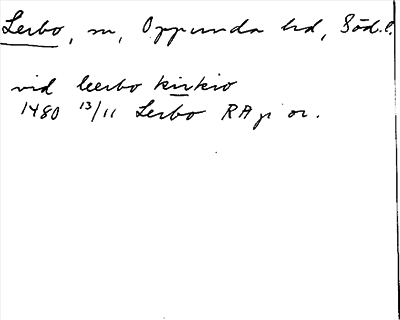 Lerbo, sn, Oppunda hd, Södl.
vid leerbo kirkio
1480 13/11 Lerbo RAp or.